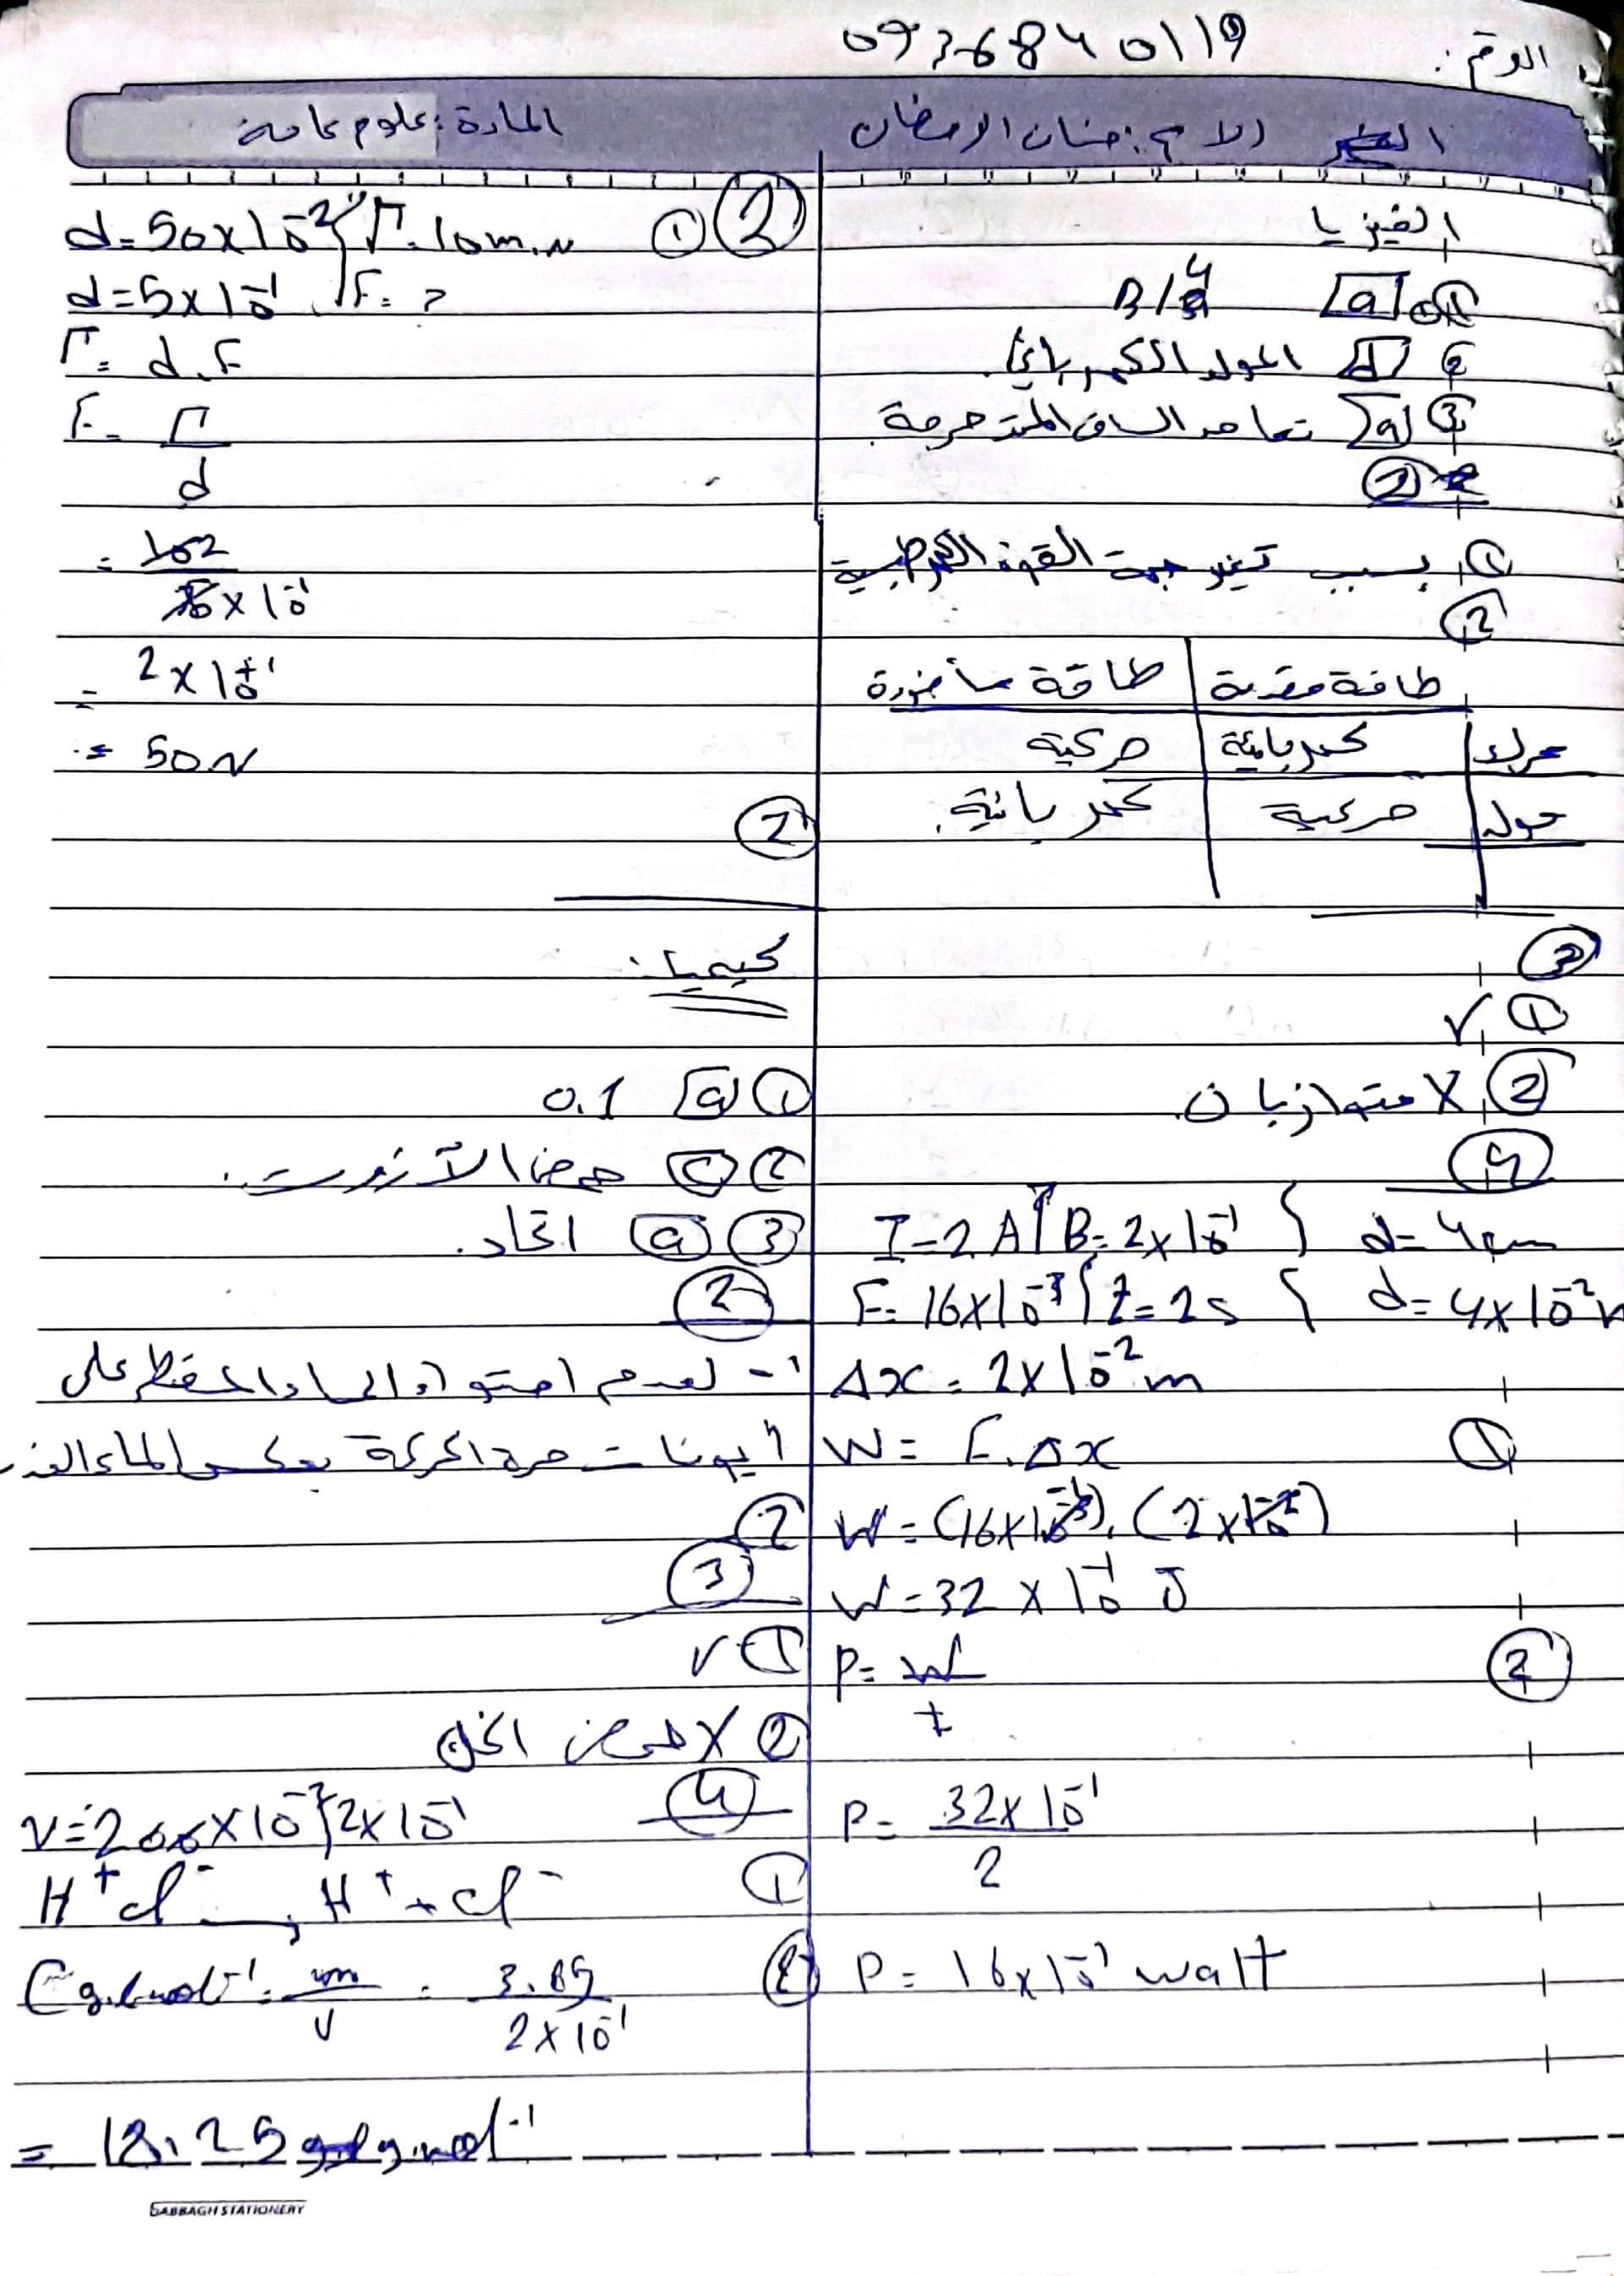 الرقم: 0936840119
الاسم: حنان الرمضان
المادة: علوم عامة
الفيزيا
① [a] B/4
② [d] المولد الكهربائي.
③ [a] تعامد الساق المتدحرجة.
②
① بسبب تغير جهة القوة الكهرطيسية
②
طاقة مقدمة | طاقة مأخوذة
محرك | كهربائية | حركية
مولد | حركية | كهربائية.
③
① √
② X متوازيان.
④
I=2A B=2×10⁻¹ d=4cm
F=16×10⁻³ t=2s d=4×10⁻²m
Δx=2×10⁻²m
① W=F.Δx
W=(16×10⁻³).(2×10⁻²)
W=32×10⁻¹ J
② P=W/t
P=32×10⁻¹/2
P=16×10⁻¹ watt
② ① d=50×10⁻² Γ=10m.N
d=5×10⁻¹ F=?
Γ=d.F
F=Γ/d
=10/5×10⁻¹
=2×10⁺¹
=50N
②
كيمياء:
① [a] 0.1
② [c] حمض الآزوت.
③ [a] اتحاد.
②
1- لعدم احتواء الماء المقطر على
أيونات حرة الحركة بعكس الماء العذب
②
③
① √
② X حمض الخل
④ V=200×10⁻³ 2×10⁻¹
① H⁺Cl⁻ → H⁺+Cl⁻
② C g.l mol⁻¹=m/V=3.65/2×10⁻¹
=18.25 g.mol⁻¹
SABBAGH STATIONERY